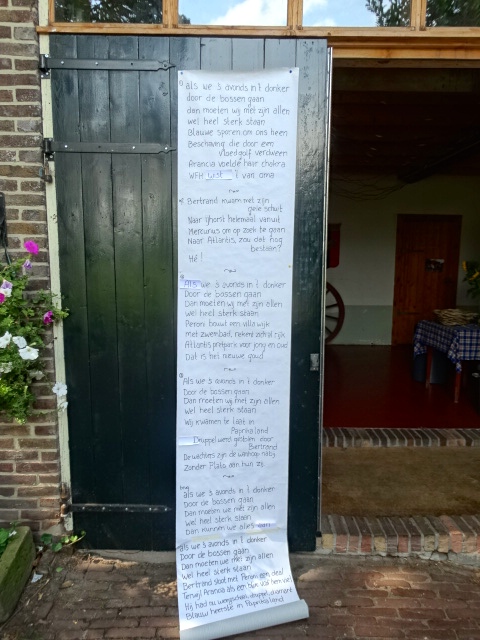 als we 's avonds in 't donker
door de bossen gaan
dan moeten wij met zijn allen
wel heel sterk staan
Blauwe sporen om ons heen
Beschaving die door een
Vloedgolf verdween
Arancia voelde haar chakra
van oma
Bertrand kwam met zijn
gele schuit
Naar Ghorit helemaal vanuit
Mercurius om op zoek te gaan
Naar Atlantis, zou dat nog
bestaan?
Hé!
Als we 's avonds in 't donker
Door de bossen gaan
Dan moeten wij met zijn allen
wel heel sterk staan
Peroni bouwt een villa wijk
met zwembad, rekent zich al rijk
Atlantis pretpark voor jong en oud
Dat is het nieuwe goud
Als we 's avonds in 't donker
Door de bossen gaan
Dan moeten wij met zijn allen
wel heel sterk staan
Wij kwamen te laat in
Paprikaland
Druppel werd gestolen door
Bertrand
De wachters zijn de wanhoop nabij
Zonder Plato aan hun zij
als we 's avonds in 't donker
Door de bossen gaan
Dan moeten we met zijn allen
wel heel sterk staan
Dan kunnen we alles aan
als we 's avonds in 't donker
Door de bossen gaan
Dan moeten we met zijn allen
wel heel sterk staan
Bertrand sloot met Peroni een deal
Terwijl Arancia als een blok voor hem viel
Hij had nu druppel, diamant
Blauw heerste in Paprikaland